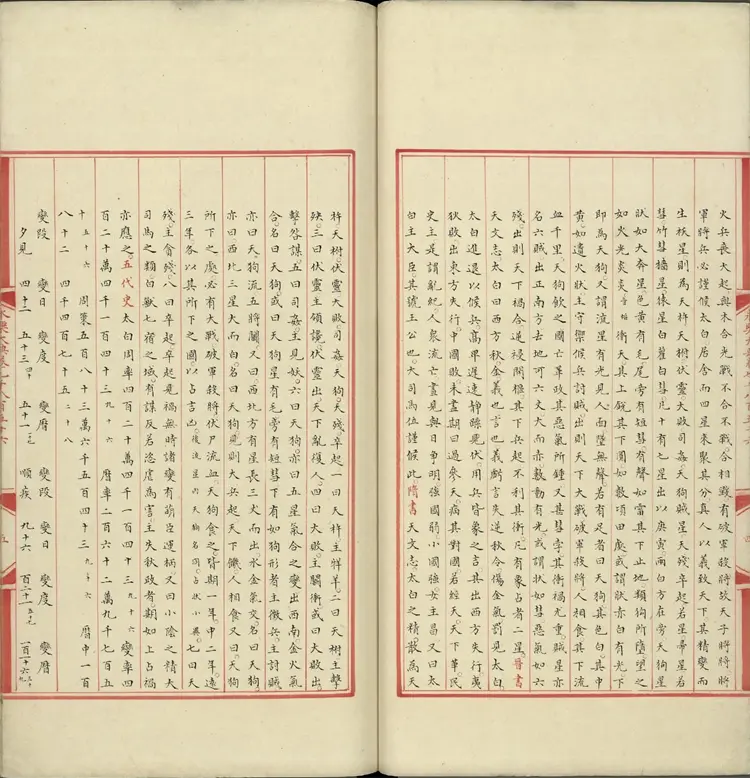 火兵喪大起與木合光戰不合不戰合相毀有破軍殺將致天子將將將
軍將兵必謹候太白居舍而四星來聚其分真人以義致天下其精變而
生星則為天杵天柎伏靈大敗司姦天狗賊星天殘卒起若星帚星若
彗竹彗牆星猿星白雚白彗凡十有七星出以庚寅雨白方在旁天狗星
狀如大奔星色黃有毛尾旁有短彗有聲如雷其下止地類狗所墮望之
如火光炎炎音焰衝天其上銳其下圓如數頃田處或謂狀赤白有光下
即為天狗又謂流星有光見人面墜無聲若有足者曰天狗其色白其中
黃如遺火狀主守禦候兵討賊出則天下大戰破軍殺將人相食其下流
血千里天狗飲之國亡革政其惡氣所鍾又甚彗孛其衝禍尤重賊星亦
名六賊出正南方去地可六丈大而赤數動有光或謂狀如彗惡氣如六
殘出則天下禍合逆祲開樞其下兵起不利其衝凡有象占者二星晉書
天文志太白曰西方秋金義也言也義虧言失逆秋令傷金氣罰見太白
太白進退以候兵高埤遲速靜躁見伏用兵皆象之吉其出西方失行夷
狄敗出東方失行中國敗未盡期日過參天病其對國若經天天下革民
史主是謂亂紀人衆流亡晝見與日爭明强國弱小國强女主昌又曰太
白主大臣其號上公也大司馬位謹候此隋書天文志太白之精散為天
杵天柎伏靈大敗司姦天狗天殘卒起一曰天杵主䍧羊二曰天柎主擊
殃三曰伏靈主領讒伏靈出天下亂復人四曰大敗主鬬衝或曰大敗出
擊咎謀五曰司姦主見妖六曰天狗亦曰五星氣合之變出西南金火氣
合名曰天狗或曰天狗星有毛旁有短彗下有如狗形者主徵兵主討賊
亦曰天狗流五將鬬又曰西北方有星長三丈而出水金氣交名曰天狗
亦曰西北三星大而白名曰天狗見則大兵起天下饑人相食又曰天狗
所下之處必有大戰破軍殺將伏尸流血天狗食之皆期一年中二年遠
三年各以其所下之國以占吉凶後流星內天狗名同占狀小異七曰天
殘主貪殘八曰卒起卒起見禍無時諸變有萌臣運柄又曰小陰之精大
司馬之類白獸七宿之域有謀反若恣虐為害主失秋政者期如上占禍
亦應之五代史太白周率四百二十萬四千一百四十三九十六變率四
百二十萬四千一百四十三九十六曆率二百六十二萬九千七百五
十五十六周策五百八十三萬六千五百四十三九十六曆中一百
八十二四千四百七十五二十八
變段 變日 變度 變曆 變段 變日 變度 變曆
夕見 四十二 五十三四十 五十一二七 順疾 九十六 百二十一五七 百一十六三十九